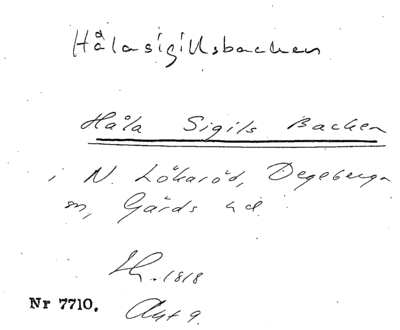 Hålasigillsbacken
Håla Sigils Backen
i N. Lökaröd, Degeberga
sn, Gärds hd.
Sk. 1818
Nr 7710. Akt 9.